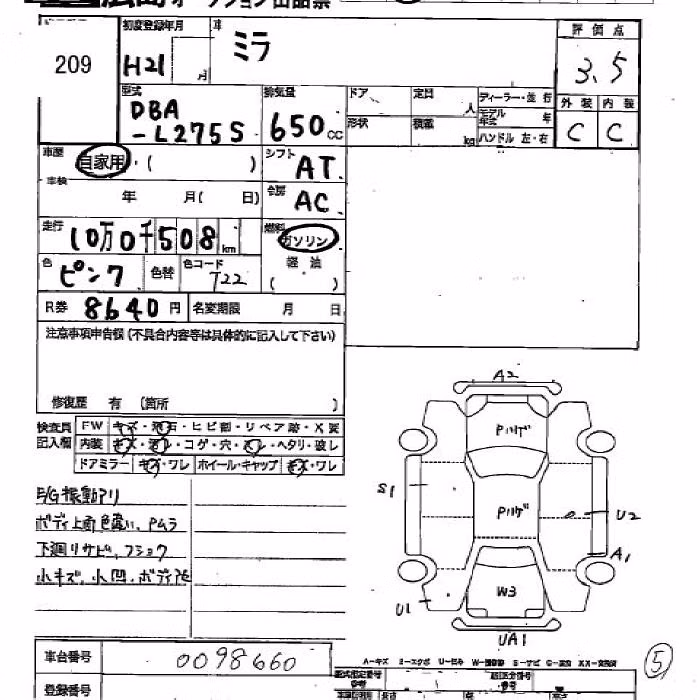 オークション出品票
209
初度登録年月
H21
月
車
ミラ
評価点
3.5
外装 内装
C C
型式
DBA
-L275S
排気量
650 cc
ドア
定員
人
ディーラー・並行
モデル
年式
年
形状
積載
kg
ハンドル 左・右
車歴
自家用・( )
シフト
AT
車検
年 月( 日)
冷房
AC
走行
10万0千508 km
燃料
ガソリン
軽油
( )
色
ピンク
色替
色コード
T22
R券 8640円
名変期限 月 日
注意事項申告欄(不具合内容等は具体的に記入して下さい)
修復歴 有 (箇所 )
検査員
記入欄
FW キズ・飛石・ヒビ割・リペア跡・X要
内装 キズ・汚レ・コゲ・穴・スレ・ヘタリ・破レ
ドアミラー キズ・ワレ ホイール・キャップ キズ・ワレ
E/G振動アリ
ボディ上面色違い、PMラ
下廻リサビ、フショク
小キズ、小凹、ボディ
A2
Pハゲ
S1
Pハゲ
U2
A1
W3
U1
UA1
車台番号
0098660
登録番号
A-キズ
5